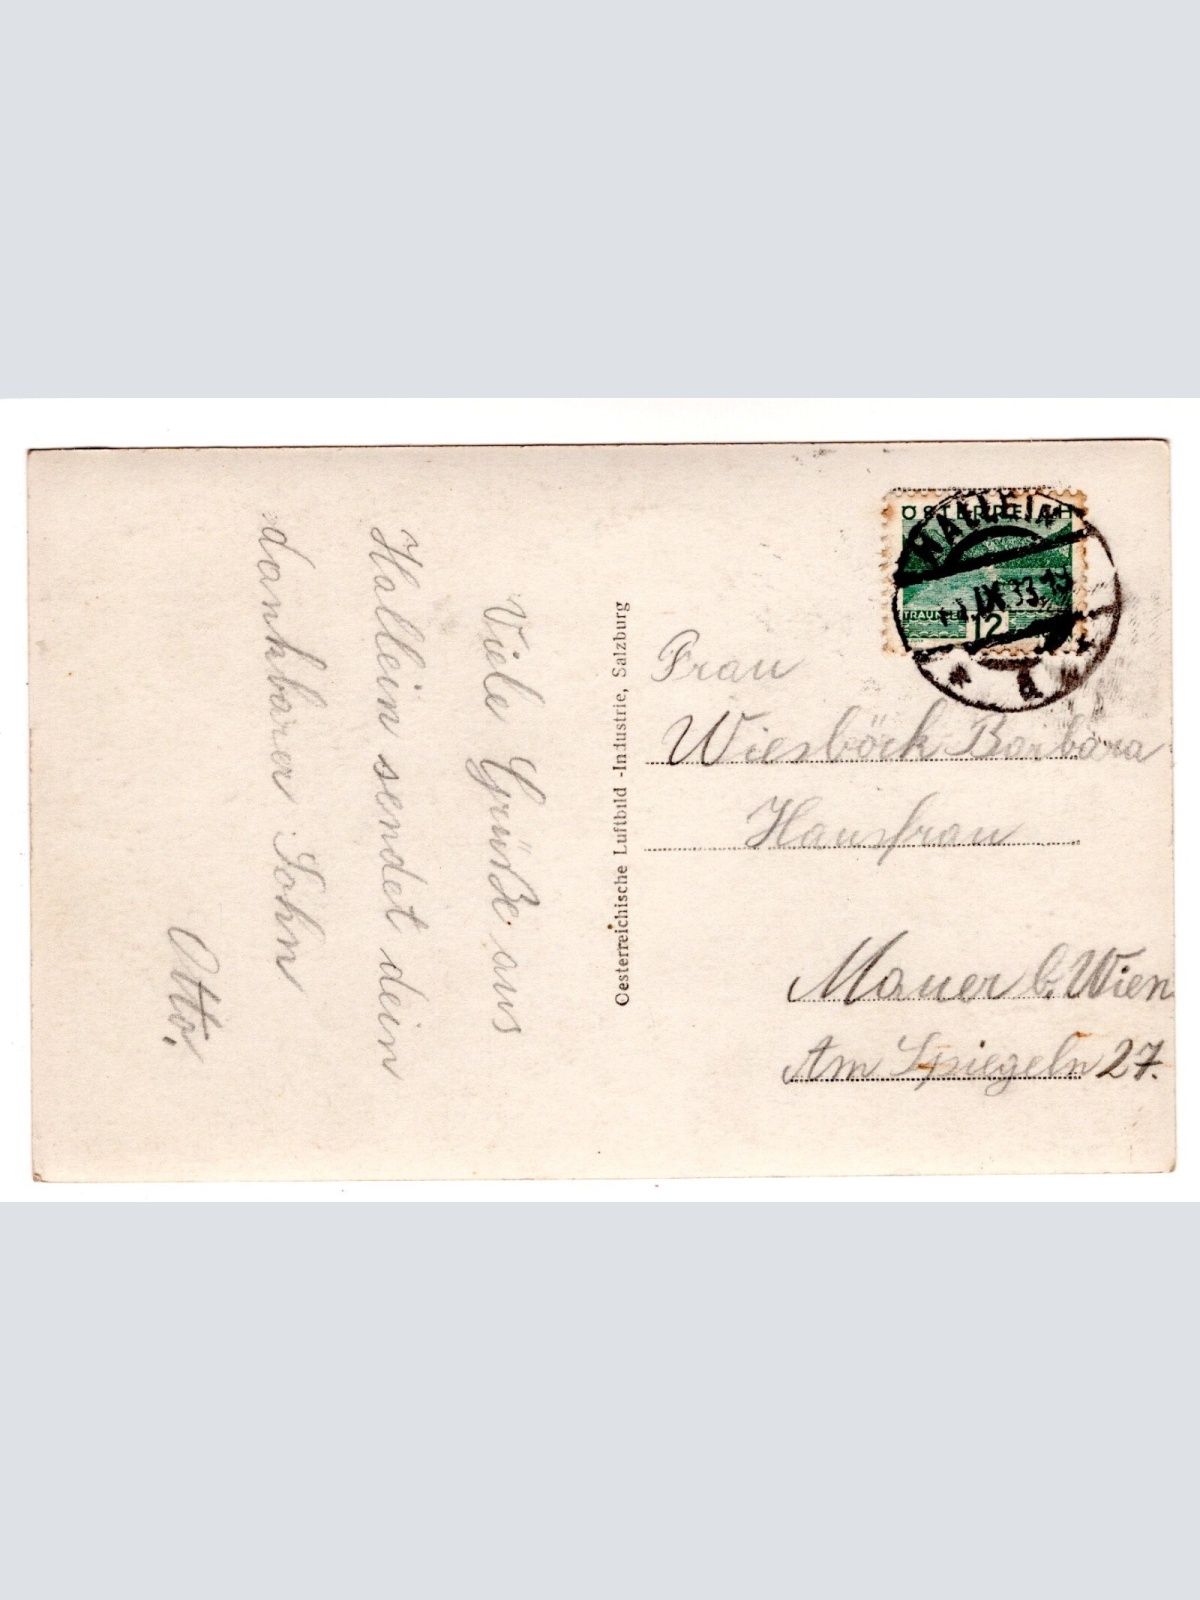 Viele Grüße aus
Hallein sendet dein
dankbarer Sohn
Otto.
Oesterreichische Luftbild -Industrie, Salzburg
ÖSTERREICH
12
HALLEIN
IX 33
Frau
Wiesböck Barbara
Hausfrau
Mauer b. Wien
Am Spiegeln 27.